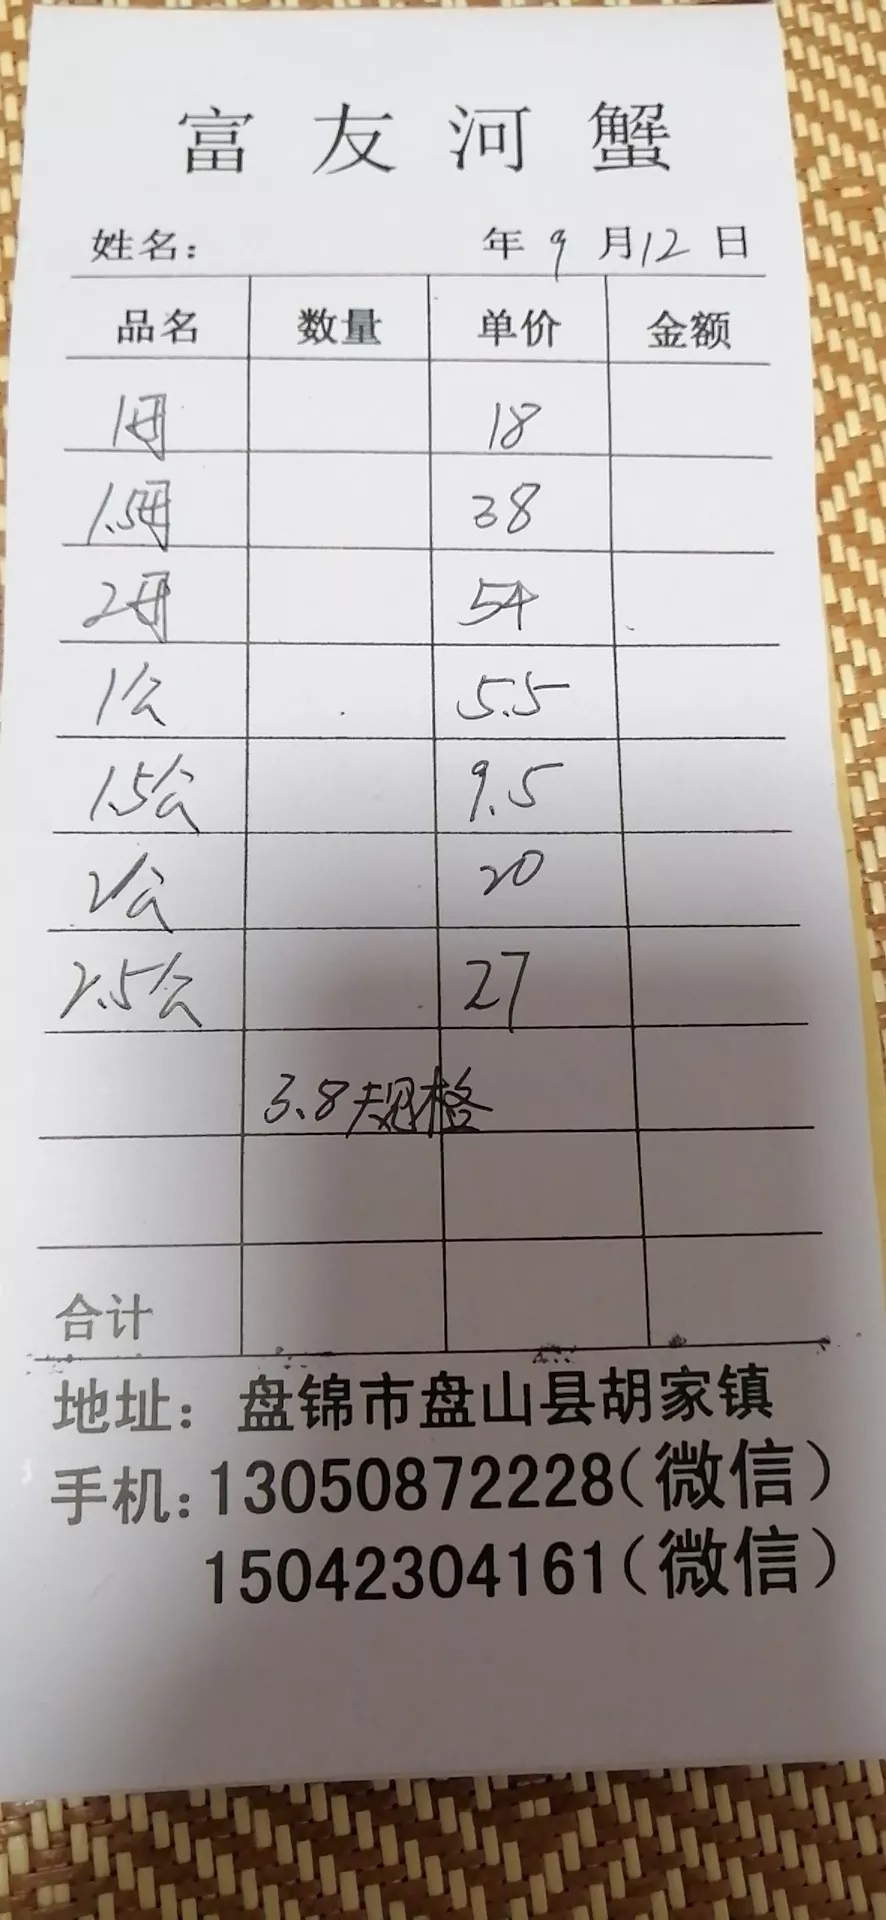 富友河蟹
姓名： 年 9 月 12 日
品名 数量 单价 金额
1母 18
1.5母 38
2母 54
1公 5.5
1.5公 9.5
2公 20
2.5公 27
3.8规格
合计
地址：盘锦市盘山县胡家镇
手机：13050872228（微信）
15042304161（微信）